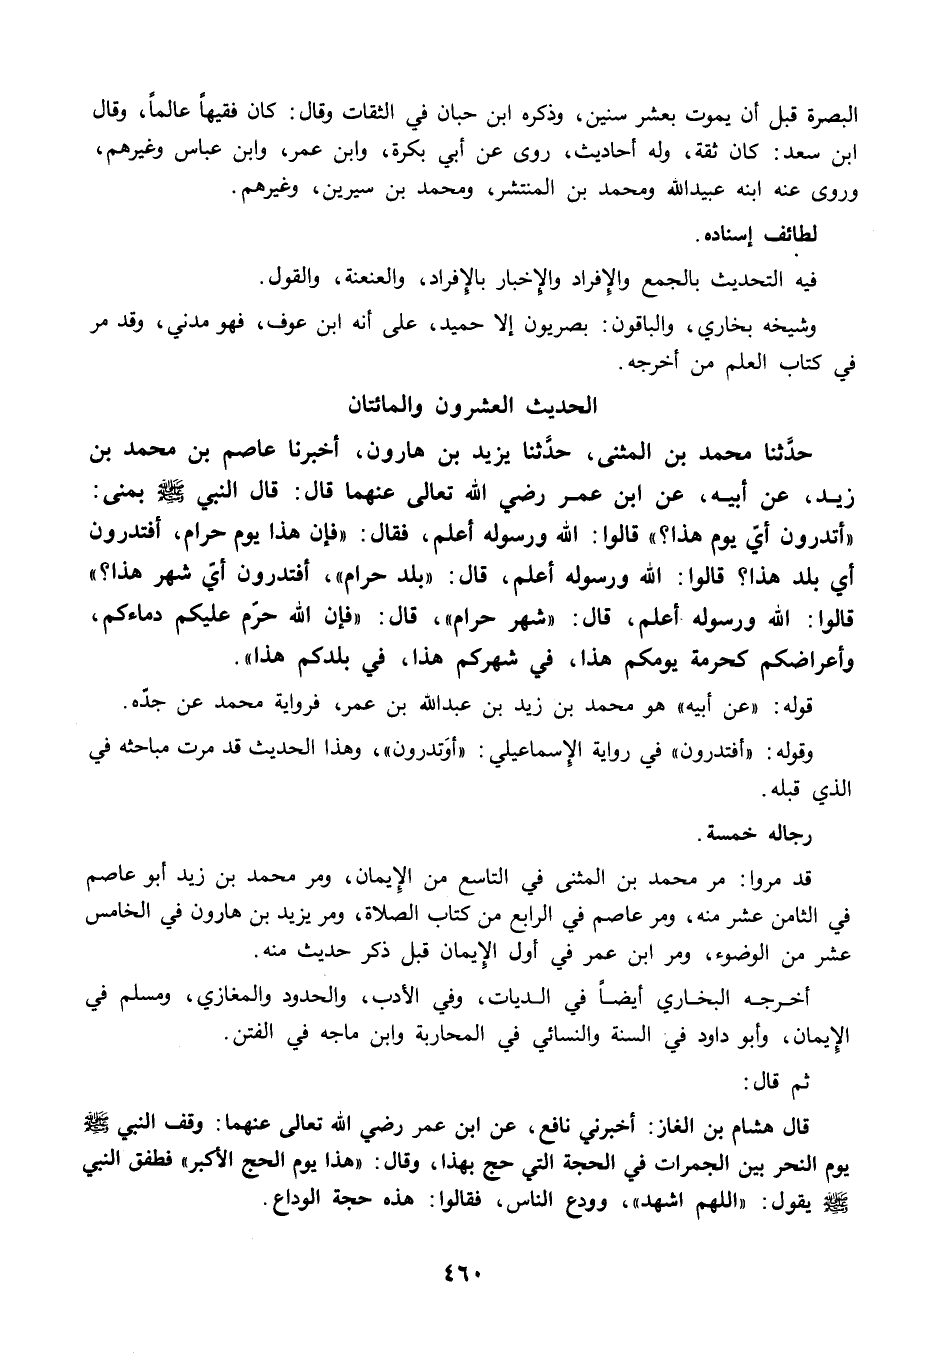 البصرة قبل أن يموت بعشر سنين، وذكره ابن حبان في الثقات وقال: كان فقيهاً عالماً، وقال
ابن سعد: كان ثقة، وله أحاديث، روى عن أبي بكرة، وابن عمر، وابن عباس وغيرهم،
وروى عنه ابنه عبيدالله ومحمد بن المنتشر، ومحمد بن سيرين، وغيرهم.
لطائف إسناده.
فيه التحديث بالجمع والإفراد والإخبار بالإفراد، والعنعنة، والقول.
وشيخه بخاري، والباقون: بصريون إلا حميد، على أنه ابن عوف، فهو مدني، وقد مر
في كتاب العلم من أخرجه.
الحديث العشرون والمائتان
حدَّثنا محمد بن المثنى، حدَّثنا يزيد بن هارون، أخبرنا عاصم بن محمد بن
زيد، عن أبيه، عن ابن عمر رضي الله تعالى عنهما قال: قال النبي ﷺ بمنى:
«أتدرون أيّ يوم هذا؟» قالوا: الله ورسوله أعلم، فقال: «فإن هذا يوم حرام، أفتدرون
أي بلد هذا؟ قالوا: الله ورسوله أعلم، قال: «بلد حرام»، أفتدرون أيّ شهر هذا؟»
قالوا: الله ورسوله أعلم، قال: «شهر حرام»، قال: «فإن الله حرّم عليكم دماءكم،
وأعراضكم كحرمة يومكم هذا، في شهركم هذا، في بلدكم هذا».
قوله: «عن أبيه» هو محمد بن زيد بن عبدالله بن عمر، فرواية محمد عن جدّه.
وقوله: «أفتدرون» في رواية الإسماعيلي: «أوَتدرون»، وهذا الحديث قد مرت مباحثه في
الذي قبله.
رجاله خمسة.
قد مروا: مر محمد بن المثنى في التاسع من الإيمان، ومر محمد بن زيد أبو عاصم
في الثامن عشر منه، ومر عاصم في الرابع من كتاب الصلاة، ومر يزيد بن هارون في الخامس
عشر من الوضوء، ومر ابن عمر في أول الإيمان قبل ذكر حديث منه.
أخرجه البخاري أيضاً في الديات، وفي الأدب، والحدود والمغازي، ومسلم في
الإيمان، وأبو داود في السنة والنسائي في المحاربة وابن ماجه في الفتن.
ثم قال:
قال هشام بن الغاز: أخبرني نافع، عن ابن عمر رضي الله تعالى عنهما: وقف النبي ﷺ
يوم النحر بين الجمرات في الحجة التي حج بهذا، وقال: «هذا يوم الحج الأكبر» فطفق النبي
ﷺ يقول: «اللهم اشهد»، وودع الناس، فقالوا: هذه حجة الوداع.
٤٦٠